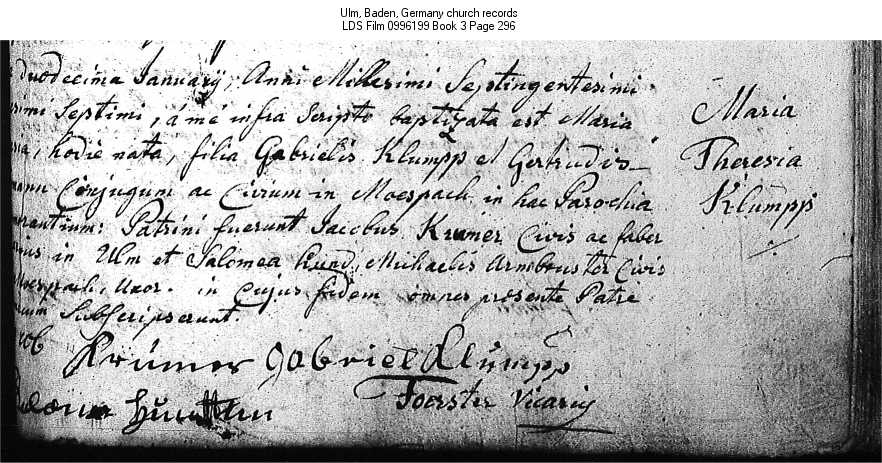 Ulm, Baden, Germany church records
LDS Film 0996199 Book 3 Page 296
duodecima Januarij, Anni Millesimi Septingentesimi
Septimi, a me infra Scripto baptizata est Maria
hodie nata, filia Gabrielis Klumpp et Gertrudis
Conjugum ac Civium in Moerspach in hac Parochia
Patrini fuerunt Jacobus Krümer Civis ac faber
in Ulm et Salomea Michaelis Armbruster Civis
Uxor. in Cujus fidem omnes presente Patre
Subscripserunt.
Maria
Theresia
Klumpp
Krümer Gabriel Klümpp
Foerster Vicarij